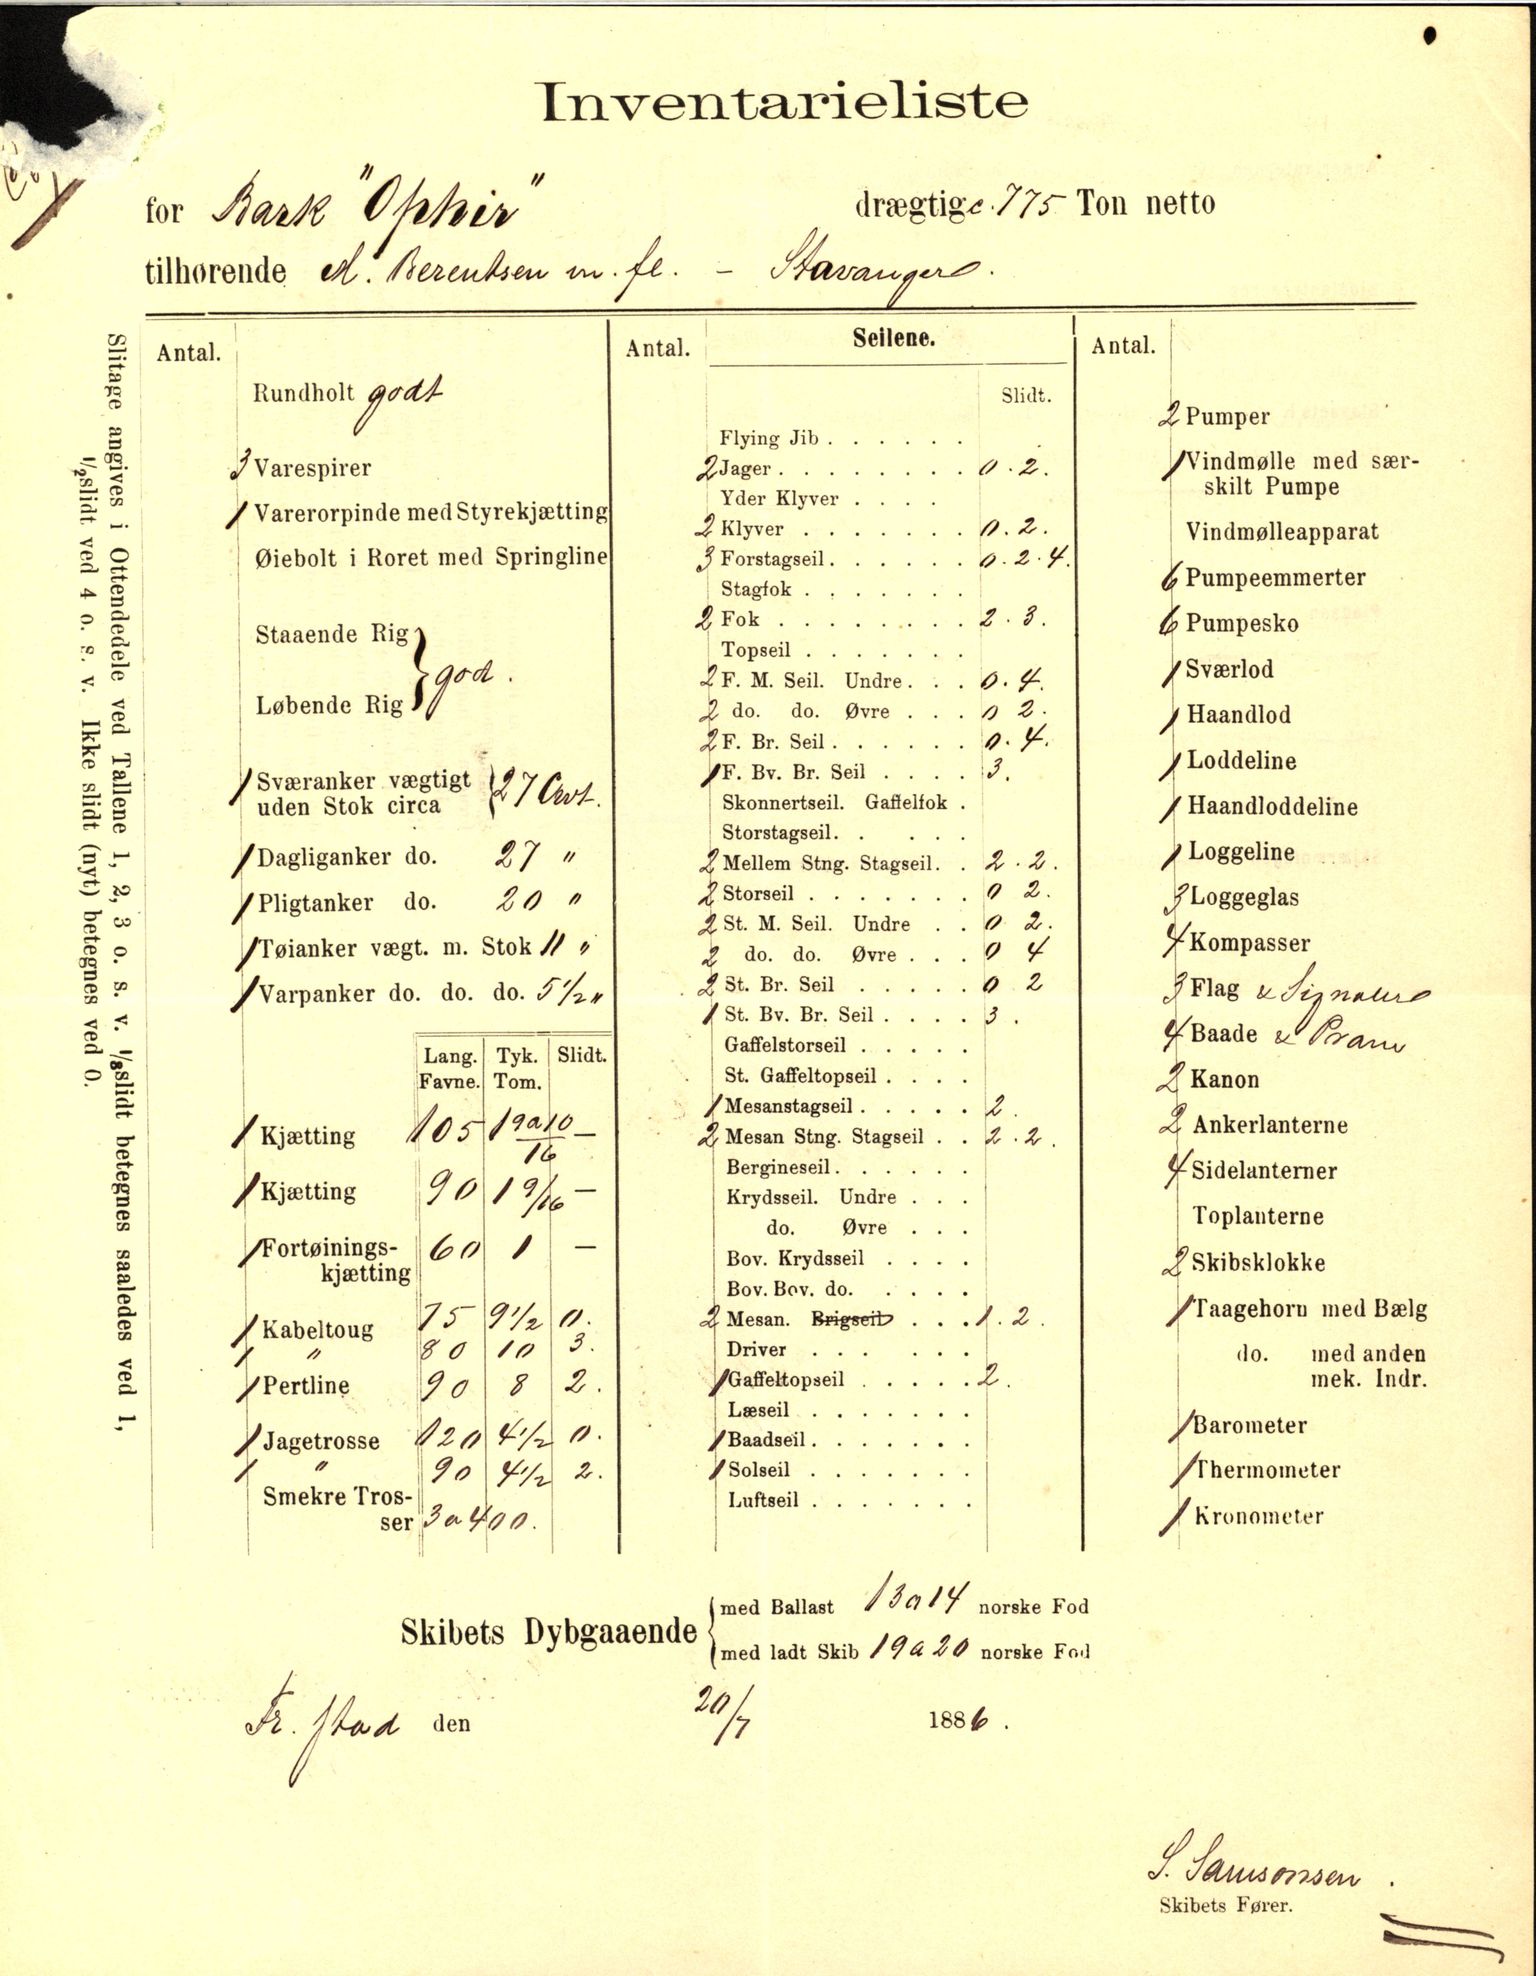 Inventarieliste
for Bark "Ophir" drægtig c. 775 Ton netto
tilhørende A. Berentsen m. fl. – Stavanger.
Slitage angives i Ottendedele ved Tallene 1, 2, 3 o. s. v. 1/8 slidt betegnes saaledes ved 1,
1/2 slidt ved 4 o. s. v. Ikke slidt (nyt) betegnes ved 0.
Antal.
Rundholt godt
3 Varespirer
1 Varerorpinde med Styrekjætting
Øiebolt i Roret med Springline
Staaende Rig
god.
Løbende Rig
1 Sværanker vægtigt
uden Stok circa 27 Cwt.
1 Dagliganker do. 27 "
1 Pligtanker do. 20 "
1 Tøianker vægt. m. Stok 11 "
1 Varpanker do. do. do. 5 1/2 "
Lang. Tyk. Slidt.
Favne. Tom.
1 Kjætting 105 1 9a10/16 –
1 Kjætting 90 1 9/16 –
1 Fortøinings-
kjætting 60 1 –
1 Kabeltoug 75 9 1/2 0.
1 " 80 10 3.
1 Pertline 90 8 2.
1 Jagetrosse 120 4 1/2 0.
1 " 90 4 1/2 2.
Smekre Tros-
ser 3 a 400.
Antal. Seilene.
Slidt.
Flying Jib . . . . . .
2 Jager . . . . . . . . 0. 2.
Yder Klyver . . . .
2 Klyver . . . . . . . 0. 2.
3 Forstagseil . . . . . . 0. 2. 4.
Stagfok . . . . . . .
2 Fok . . . . . . . . 2. 3.
Topseil . . . . . . .
2 F. M. Seil. Undre . . . 0. 4.
2 do. do. Øvre . . . 0 2.
2 F. Br. Seil . . . . . . 0. 4.
1 F. Bv. Br. Seil . . . . 3.
Skonnertseil. Gaffelfok .
Storstagseil. . . . .
2 Mellem Stng. Stagseil. . 2. 2.
2 Storseil . . . . . . . 0 2.
2 St. M. Seil. Undre . . 0 2.
2 do. do. Øvre . . . 0 4
2 St. Br. Seil . . . . . 0 2
1 St. Bv. Br. Seil . . . . 3.
Gaffelstorseil . . . . .
St. Gaffeltopseil . . . .
1 Mesanstagseil . . . . . 2.
2 Mesan Stng. Stagseil . . 2. 2.
Bergineseil . . . . . .
Krydsseil. Undre . . .
do. Øvre . . .
Bov. Krydsseil . . . .
Bov. Bov. do. . . . .
2 Mesan. Brigseil . . . 1. 2.
Driver . . . . . .
1 Gaffeltopseil . . . . . 2.
Læseil . . . . . . .
1 Baadseil . . . . . . .
1 Solseil . . . . . . .
Luftseil . . . . . . .
Antal.
2 Pumper
1 Vindmølle med sær-
skilt Pumpe
Vindmølleapparat
6 Pumpeemmerter
6 Pumpesko
1 Sværlod
1 Haandlod
1 Loddeline
1 Haandloddeline
1 Loggeline
3 Loggeglas
4 Kompasser
3 Flag & Signaler
4 Baade & Pram
2 Kanon
2 Ankerlanterne
4 Sidelanterner
Toplanterne
2 Skibsklokke
1 Taagehorn med Bælg
do. med anden
mek. Indr.
1 Barometer
1 Thermometer
1 Kronometer
Skibets Dybgaaende
med Ballast 13 a 14 norske Fod
med ladt Skib 19 a 20 norske Fod
Fr. stad den 20/7 1886.
S. Samsonsen.
Skibets Fører.